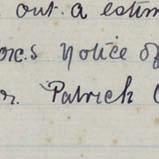 out a estim
notice of
or. Patrick